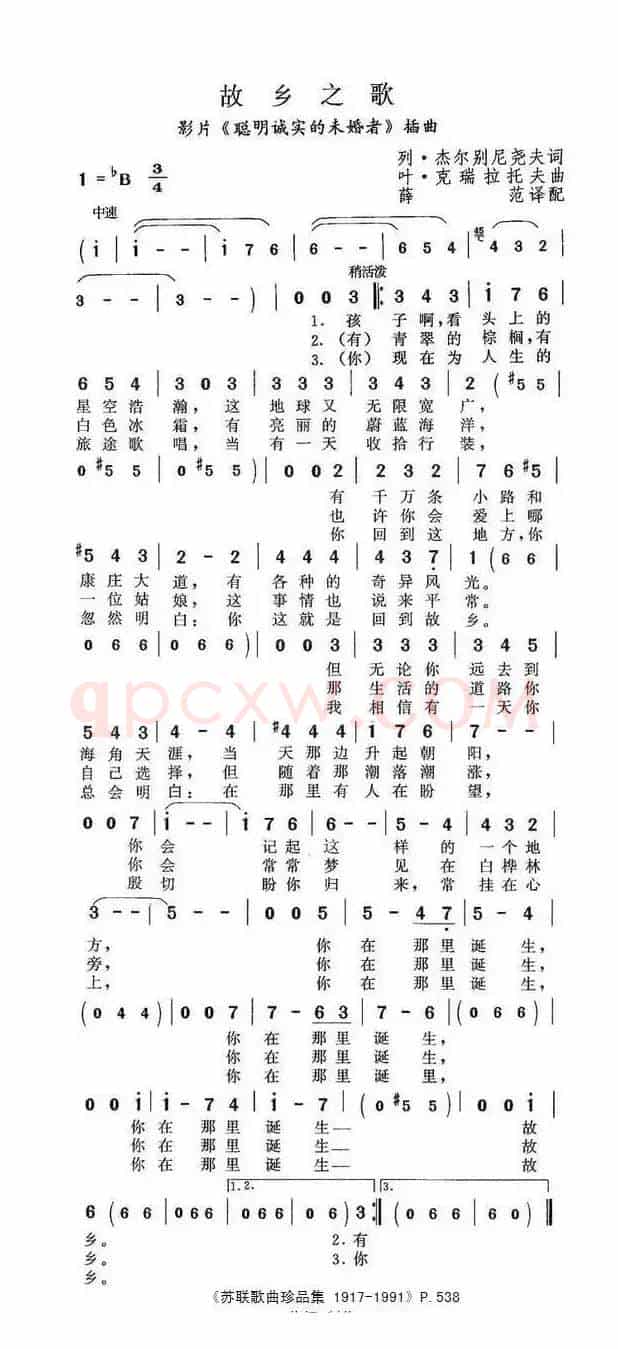 故乡之歌
影片《聪明诚实的未婚者》插曲
列·杰尔别尼尧夫词
1 = ♭B 3/4
叶·克瑞拉托夫曲
薛 范译配
中速
( i | i - - | i 7 6 | 6 - - | 6 5 4 | 4 3 2 |
稍活泼
3 - - | 3 - - ) | 0 0 3 |: 3 4 3 | i 7 6 |
1. 孩 子啊,看 头上的
2.(有)青 翠的 棕榈,有
3.(你)现 在为 人生的
6 5 4 | 3 0 3 | 3 3 3 | 3 4 3 | 2 ( #5 5 |
星空浩 瀚, 这 地球又 无限宽 广,
白色冰 霜, 有 亮丽的 蔚蓝海 洋,
旅途歌 唱, 当 有一天 收拾行 装,
0 #5 5 | 0 #5 5 ) | 0 0 2 | 2 3 2 | 7 6 #5 |
有 千万条 小路和
也 许你会 爱上哪
你 回到这 地方,你
#5 4 3 | 2 - 2 | 4 4 4 | 4 3 7 | 1 ( 6 6 |
康庄大 道, 有 各种的 奇异风 光。
一位姑 娘, 这 事情也 说来平 常。
忽然明 白: 你 这就是 回到故 乡。
0 6 6 | 0 6 6 ) | 0 0 3 | 3 3 3 | 3 4 5 |
但 无论你 远去到
那 生活的 道路你
我 相信有 一天你
5 4 3 | 4 - 4 | #4 4 4 | i 7 6 | 7 - - |
海角天 涯, 当 天那边 升起朝 阳,
自己选 择, 但 随着那 潮落潮 涨,
总会明 白: 在 那里有 人在盼 望,
0 0 7 | i - - | i 7 6 | 6 - - | 5 - 4 | 4 3 2 |
你 会 记起 这 样 的 一个地
你 会 常常 梦 见 在 白桦林
殷 切 盼你 归 来, 常 挂在心
3 - - | 5 - - | 0 0 5 | 5 - 4 7 | 5 - 4 |
方, 你 在 那里 诞 生,
旁, 你 在 那里 诞 生,
上, 你 在 那里 诞 生,
( 0 4 4 ) | 0 0 7 | 7 - 6 3 | 7 - 6 | ( 0 6 6 ) |
你 在 那里 诞 生,
你 在 那里 诞 生,
你 在 那里 诞 里,
0 0 i | i - 7 4 | i - 7 | ( 0 #5 5 ) | 0 0 i |
你 在 那里 诞 生— 故
你 在 那里 诞 生— 故
你 在 那里 诞 生— 故
1. 2. 3.
6 ( 6 6 | 0 6 6 | 0 6 6 | 0 6 6 | 0 ) 3 :| ( 0 6 6 | 0 6 6 | 6 0 ) ‖
乡。 2. 有
乡。 3. 你
乡。
qpcxw.COM
《苏联歌曲珍品集 1917-1991》P.538